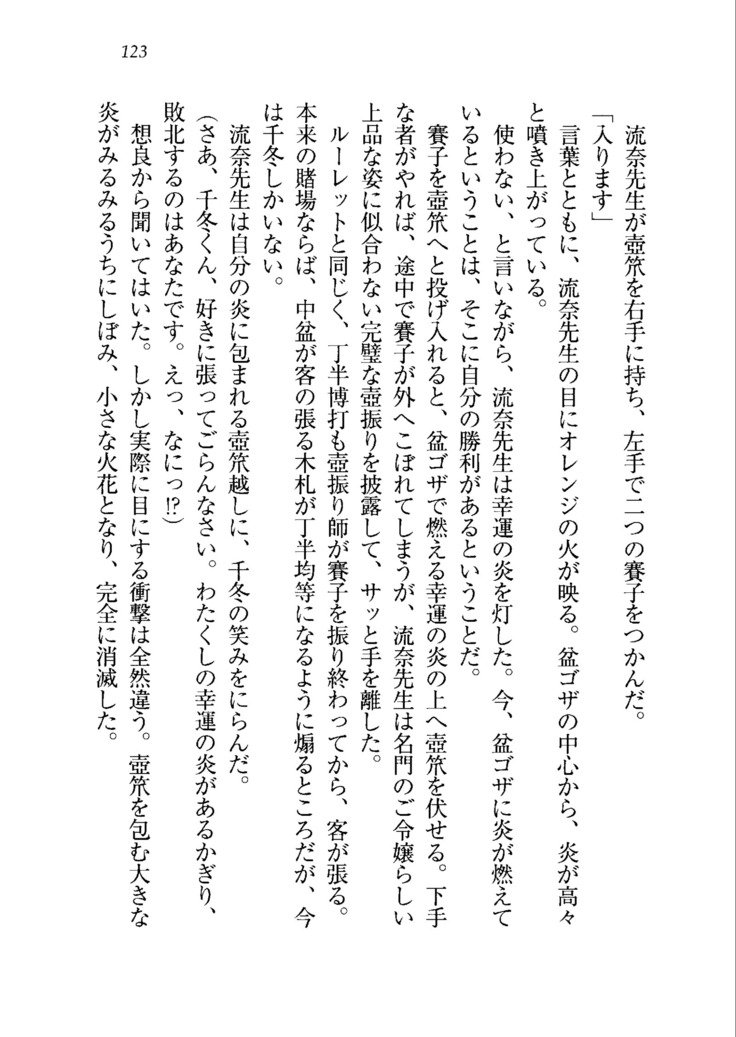 123
流奈先生が壺笊を右手に持ち、左手で二つの賽子をつかんだ。
「入ります」
言葉とともに、流奈先生の目にオレンジの火が映る。盆ゴザの中心から、炎が高々
と噴き上がっている。
使わない、と言いながら、流奈先生は幸運の炎を灯した。今、盆ゴザに炎が燃えて
いるということは、そこに自分の勝利があるということだ。
賽子を壺笊へと投げ入れると、盆ゴザで燃える幸運の炎の上へ壺笊を伏せる。下手
な者がやれば、途中で賽子が外へこぼれてしまうが、流奈先生は名門のご令嬢らしい
上品な姿に似合わない完璧な壺振りを披露して、サッと手を離した。
ルーレットと同じく、丁半博打も壺振り師が賽子を振り終わってから、客が張る。
本来の賭場ならば、中盆が客の張る木札が丁半均等になるように煽るところだが、今
は千冬しかいない。
流奈先生は自分の炎に包まれる壺笊越しに、千冬の笑みをにらんだ。
(さあ、千冬くん、好きに張ってごらんなさい。わたくしの幸運の炎があるかぎり、
敗北するのはあなたです。えっ、なにっ!?)
想良から聞いてはいた。しかし実際に目にする衝撃は全然違う。壺笊を包む大きな
炎がみるみるうちにしぼみ、小さな火花となり、完全に消滅した。